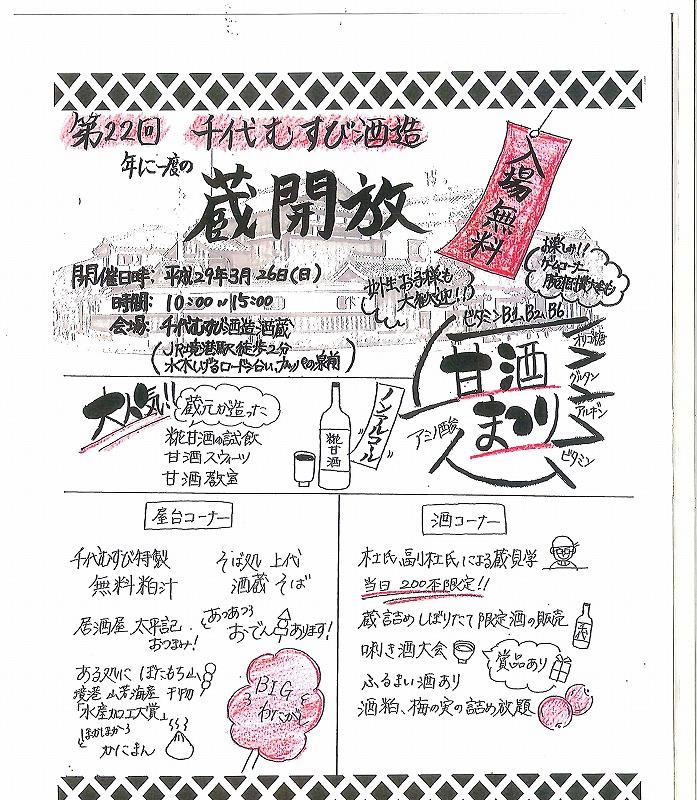 第22回 千代むすび酒造
年に一度の
蔵開放
入場無料
開催日時: 平成29年3月26日(日)
時間: 10:00〜15:00
会場: 千代むすび酒造酒蔵
(JR境港駅徒歩2分
水木しげるロード沿い、カッパの泉前)
お子様も
大歓迎!!
お楽しみ!!
ゲームコーナー
ビタミンB1、B2、B6
甘酒
まつり
オリゴ糖
グルタン
アルギン
ビタミン
アミノ酸
大人気!!
蔵元が造った
糀甘酒の試飲
甘酒スウィーツ
甘酒教室
糀甘酒
ノンアルコール
屋台コーナー
千代むすび特製
無料粕汁
そば処 上代
酒蔵そば
居酒屋 太平記
おつまみ!
あつあつ
おでんあります!
ある処に ぼたもち
境港 海産 干物
「水産加工大賞」
ほかほか
かにまん
BIG
わたがし
酒コーナー
杜氏、副杜氏による蔵見学
当日 200本限定!!
蔵詰めしぼりたて限定酒の販売
唎き酒大会
賞品あり
ふるまい酒あり
酒粕、梅の実の詰め放題